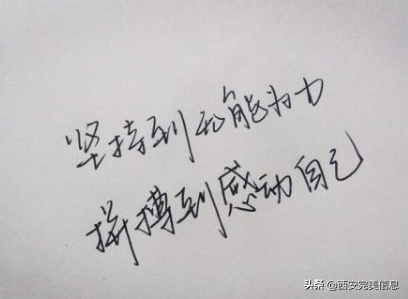 坚持到无能为力
拼搏到感动自己
头条@西安完美信息